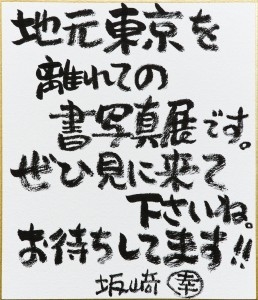 地元東京を
離れての
書写真展です。
ぜひ見に来て
下さいね。
お待ちしてます!!
坂崎 幸